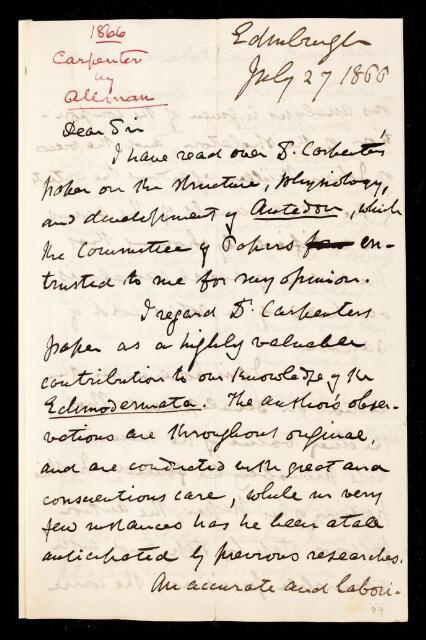 1866
Carpenter
by
Allman
Edinburgh
July 27 1866
Dear Sir
I have read over Dr. Carpenter's
paper on the structure, physiology,
and development of Antedon, which
the Committee of Papers en-
trusted to me for my opinion.
I regard Dr. Carpenters
paper as a highly valuable
contribution to our knowledge of the
Echinodermata. The author's obser-
vations are throughout original,
and are conducted with great and
conscientious care, while in very
few instances has he been at all
anticipated by previous researches.
An accurate and labori-
99